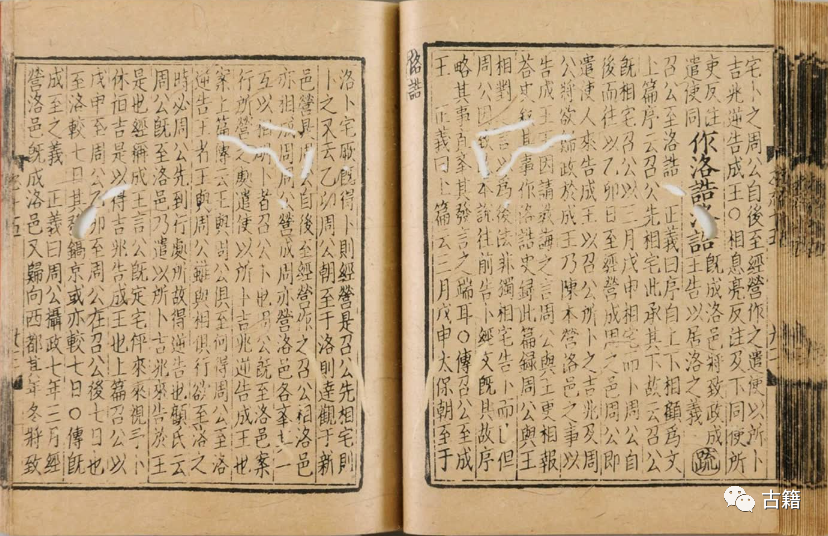 洛誥
宅卜之周公自後至經營作之遣使以所卜
吉兆逆告成王○相息亮反注及下同使所
吏反注遣使同 作洛誥洛誥 既成洛邑將致政成王告以居洛之義 疏
召公至洛誥 正義曰序自上下相顧爲文
上篇序云召公先相宅此承其下故云召公
既相宅召公以三月戊申相宅而卜周公自
後而往以乙卯日至經營成周之邑周公即
遣使人來告成王以召公所卜之吉兆及周
公將欲歸政於成王乃陳本營洛邑之事以
告成王王因請教誨之言周公與王更相報
荅史敘其事作洛誥史錄此篇錄周公與王
相對言以爲後法非獨相宅告卜而已但
周公因致本說往前告卜經文既具故序
略其事直舉其發言之端耳○傳召公至成
王 正義曰上篇云三月戊申太保朝至于
洛卜宅厥既得卜則經營是召公先相宅則
卜之又云乙卯周公朝至于洛則達觀于新
邑營是周公自後至經營作之召公相洛邑
亦相周周營成周亦營洛邑各舉其一
互以相卜者召公卜也周公既至洛邑案
行所營之處遣使以所卜吉兆逆告成王也
案上篇傳云王與周公俱至何得周公至洛
逆告王者王與周公雖與相俱行欲至洛之
時必周公先到行處所故得逆告也顧氏云
周公既至洛邑乃遣以所卜吉兆來告於王
是也經稱成王言公既定宅伻來來視予卜
休恒吉是以得吉兆告成王也上篇召公以
戊申至周公乙卯至周公在召公後七日也
至洛較七日其發鎬京或亦較七日○傳既
成至之義 正義曰周公攝政七年三月經
營洛邑既成洛邑又歸向西都其年冬將致
古籍